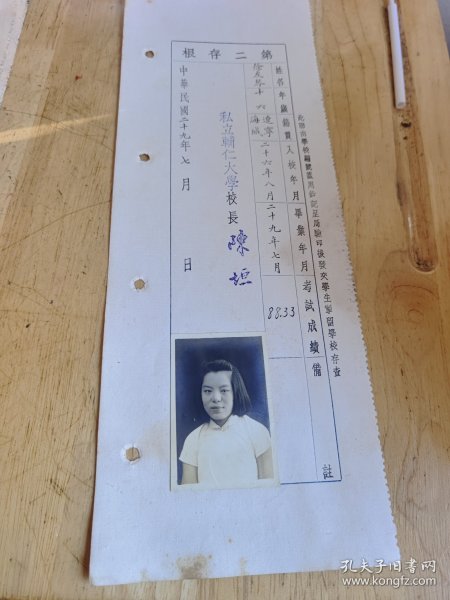 第二存根
此聯由學校編號蓋用鈐記呈局驗印後發交學生畢留學校存查
姓名 年歲 籍貫 入校年月 畢業年月 考試成績 備註
十六 遼寧海城 二十六年八月 二十九年七月 88.33
私立輔仁大學校長 陳垣
中華民國二十九年七月 日
孔夫子旧书网
www.kongfz.com